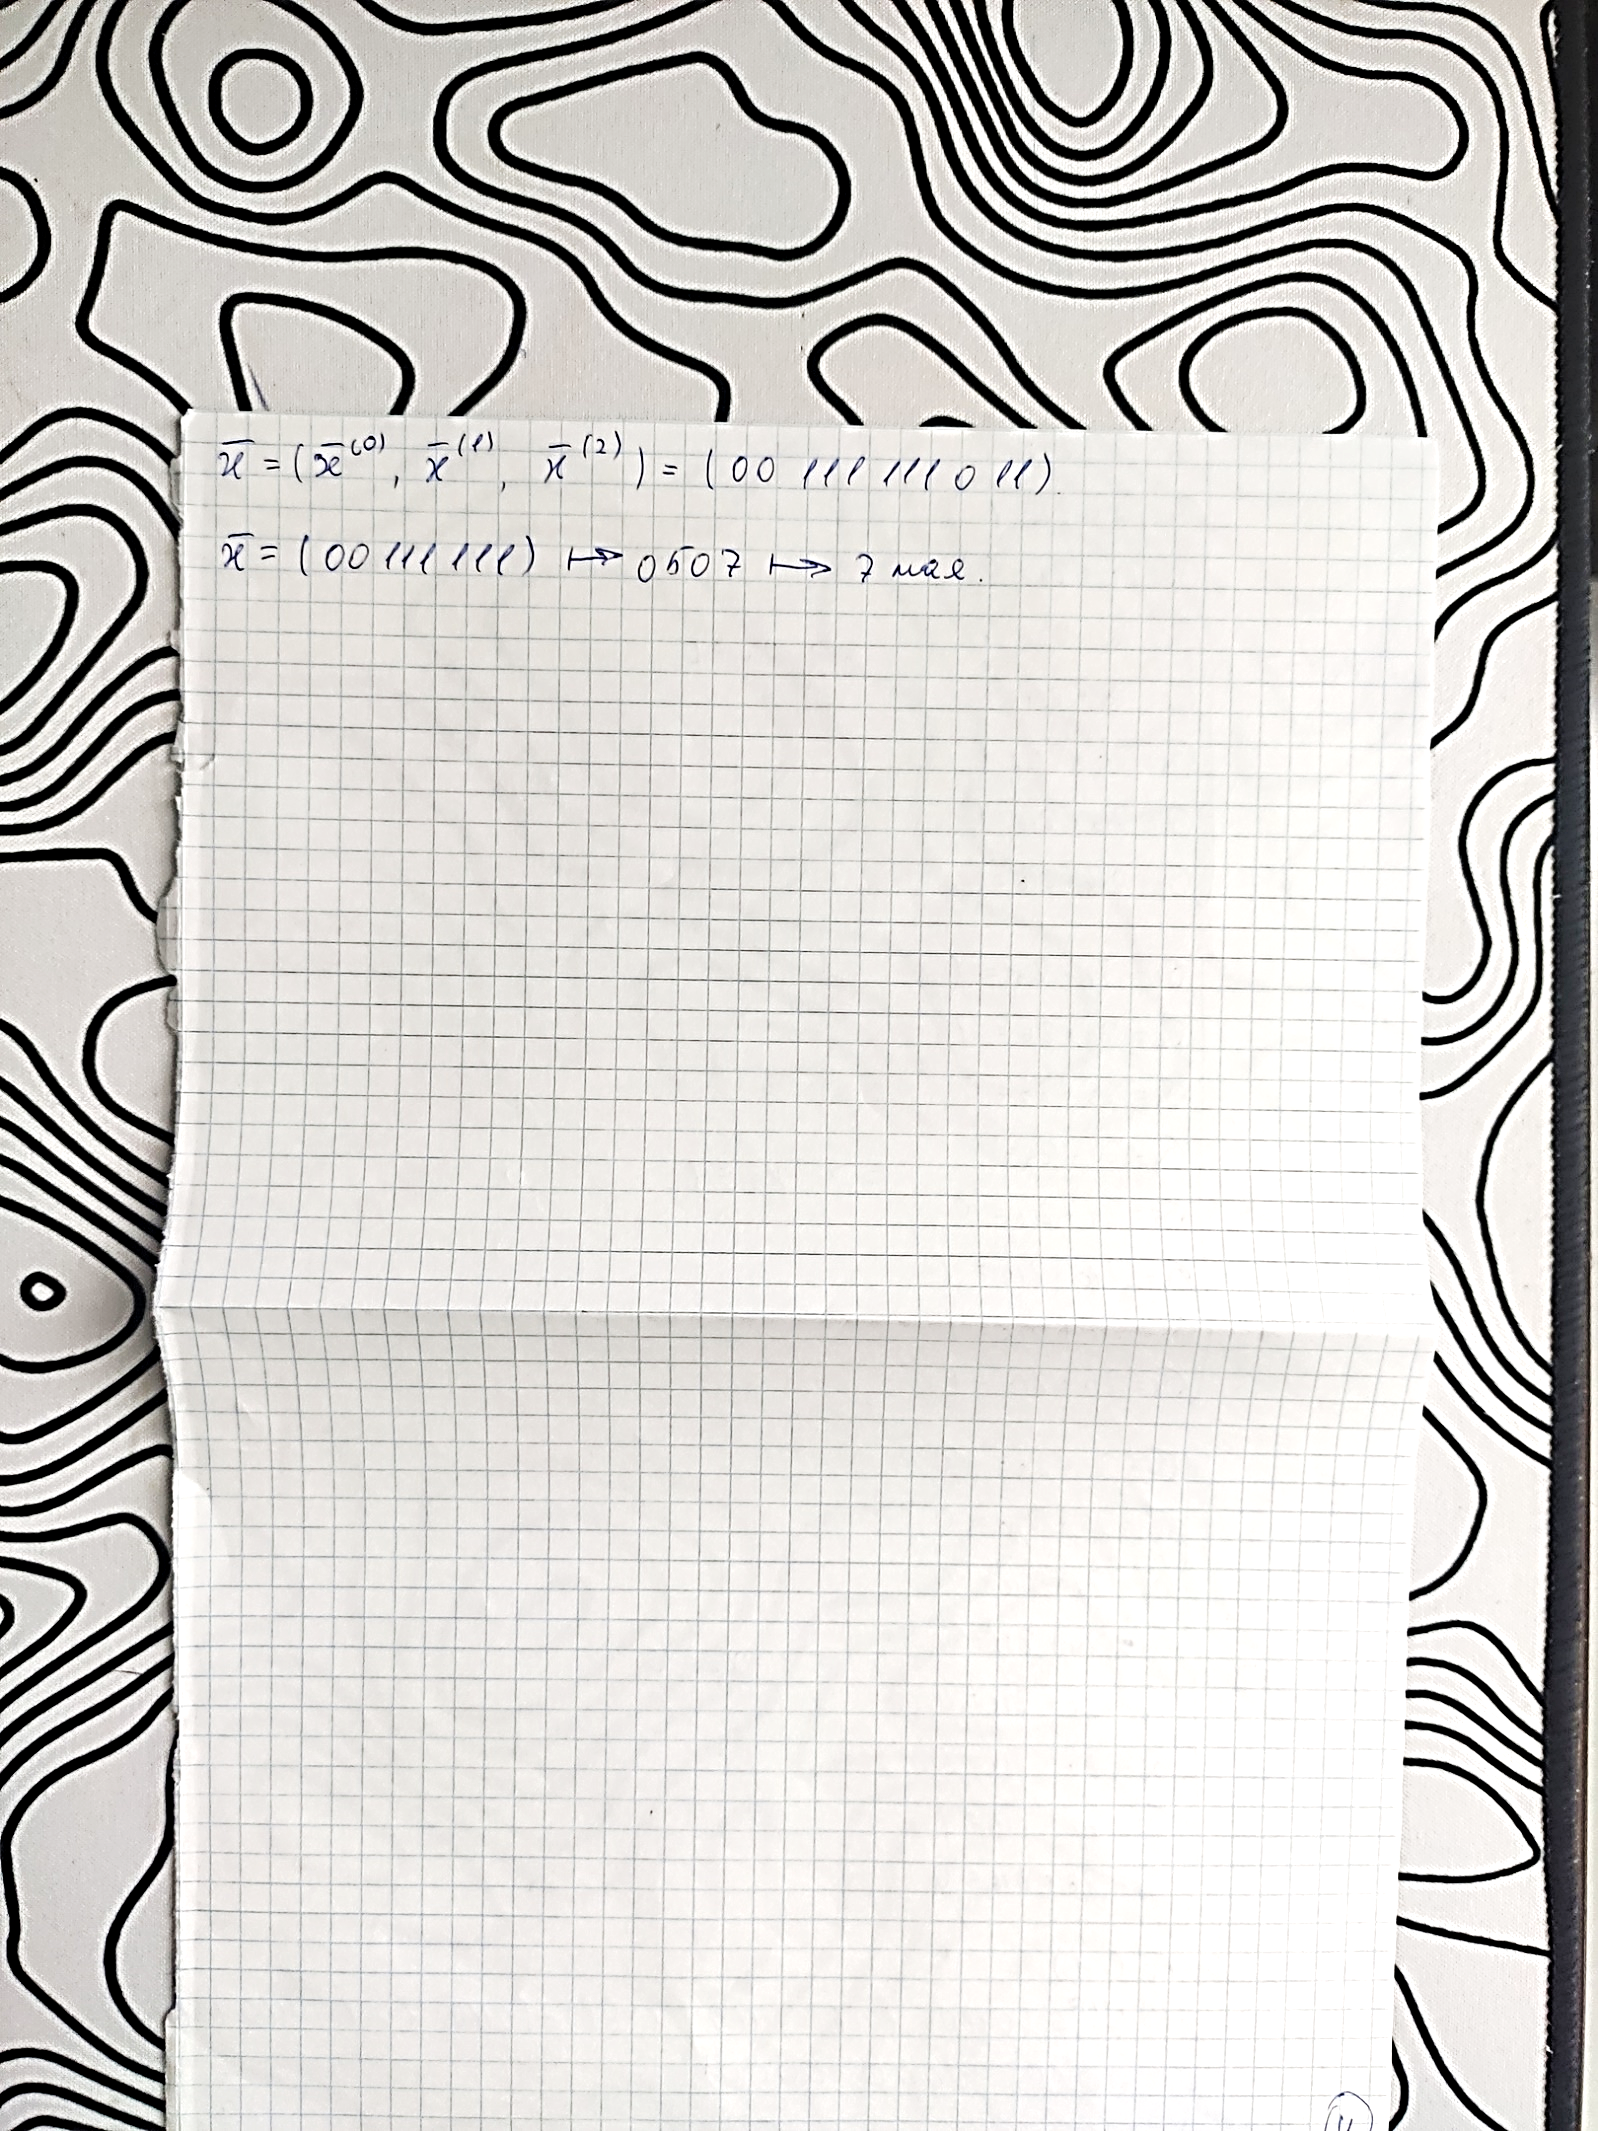 x̄ = (x̄⁽⁰⁾, x̄⁽¹⁾, x̄⁽²⁾) = (00 111 111 0 11).
x̄ = (00 111 111) ↦ 0507 ↦ 7 мая.